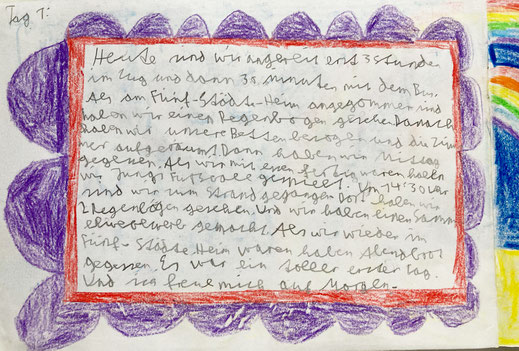 Tag 1:
Heute sind wir angereist erst 3 Stunden
im Zug und dann 30 minuten mit dem Bus.
Als am Fünf-Städte-Heim angekommen sind
haben wir einen Regenbogen gesehen. Danach
haben wir unsere Betten bezogen und die Zim
mer aufgeräumt. Dann haben wir Mittag
gegessen. Als wir mit essen fertig waren haben
wir Jungs Fußball gespielt. Um 14:30 Uhr
sind wir zum Strand gegangen. Dort haben wir
2 Regenbögen gesehen. Und wir haben einen Samm
elwettbewerb gemacht. Als wir wieder im
Fünf-Städte Heim waren haben Abendbrot
gegessen. Es war ein toller erster Tag.
Und ich freue mich auf Morgen.